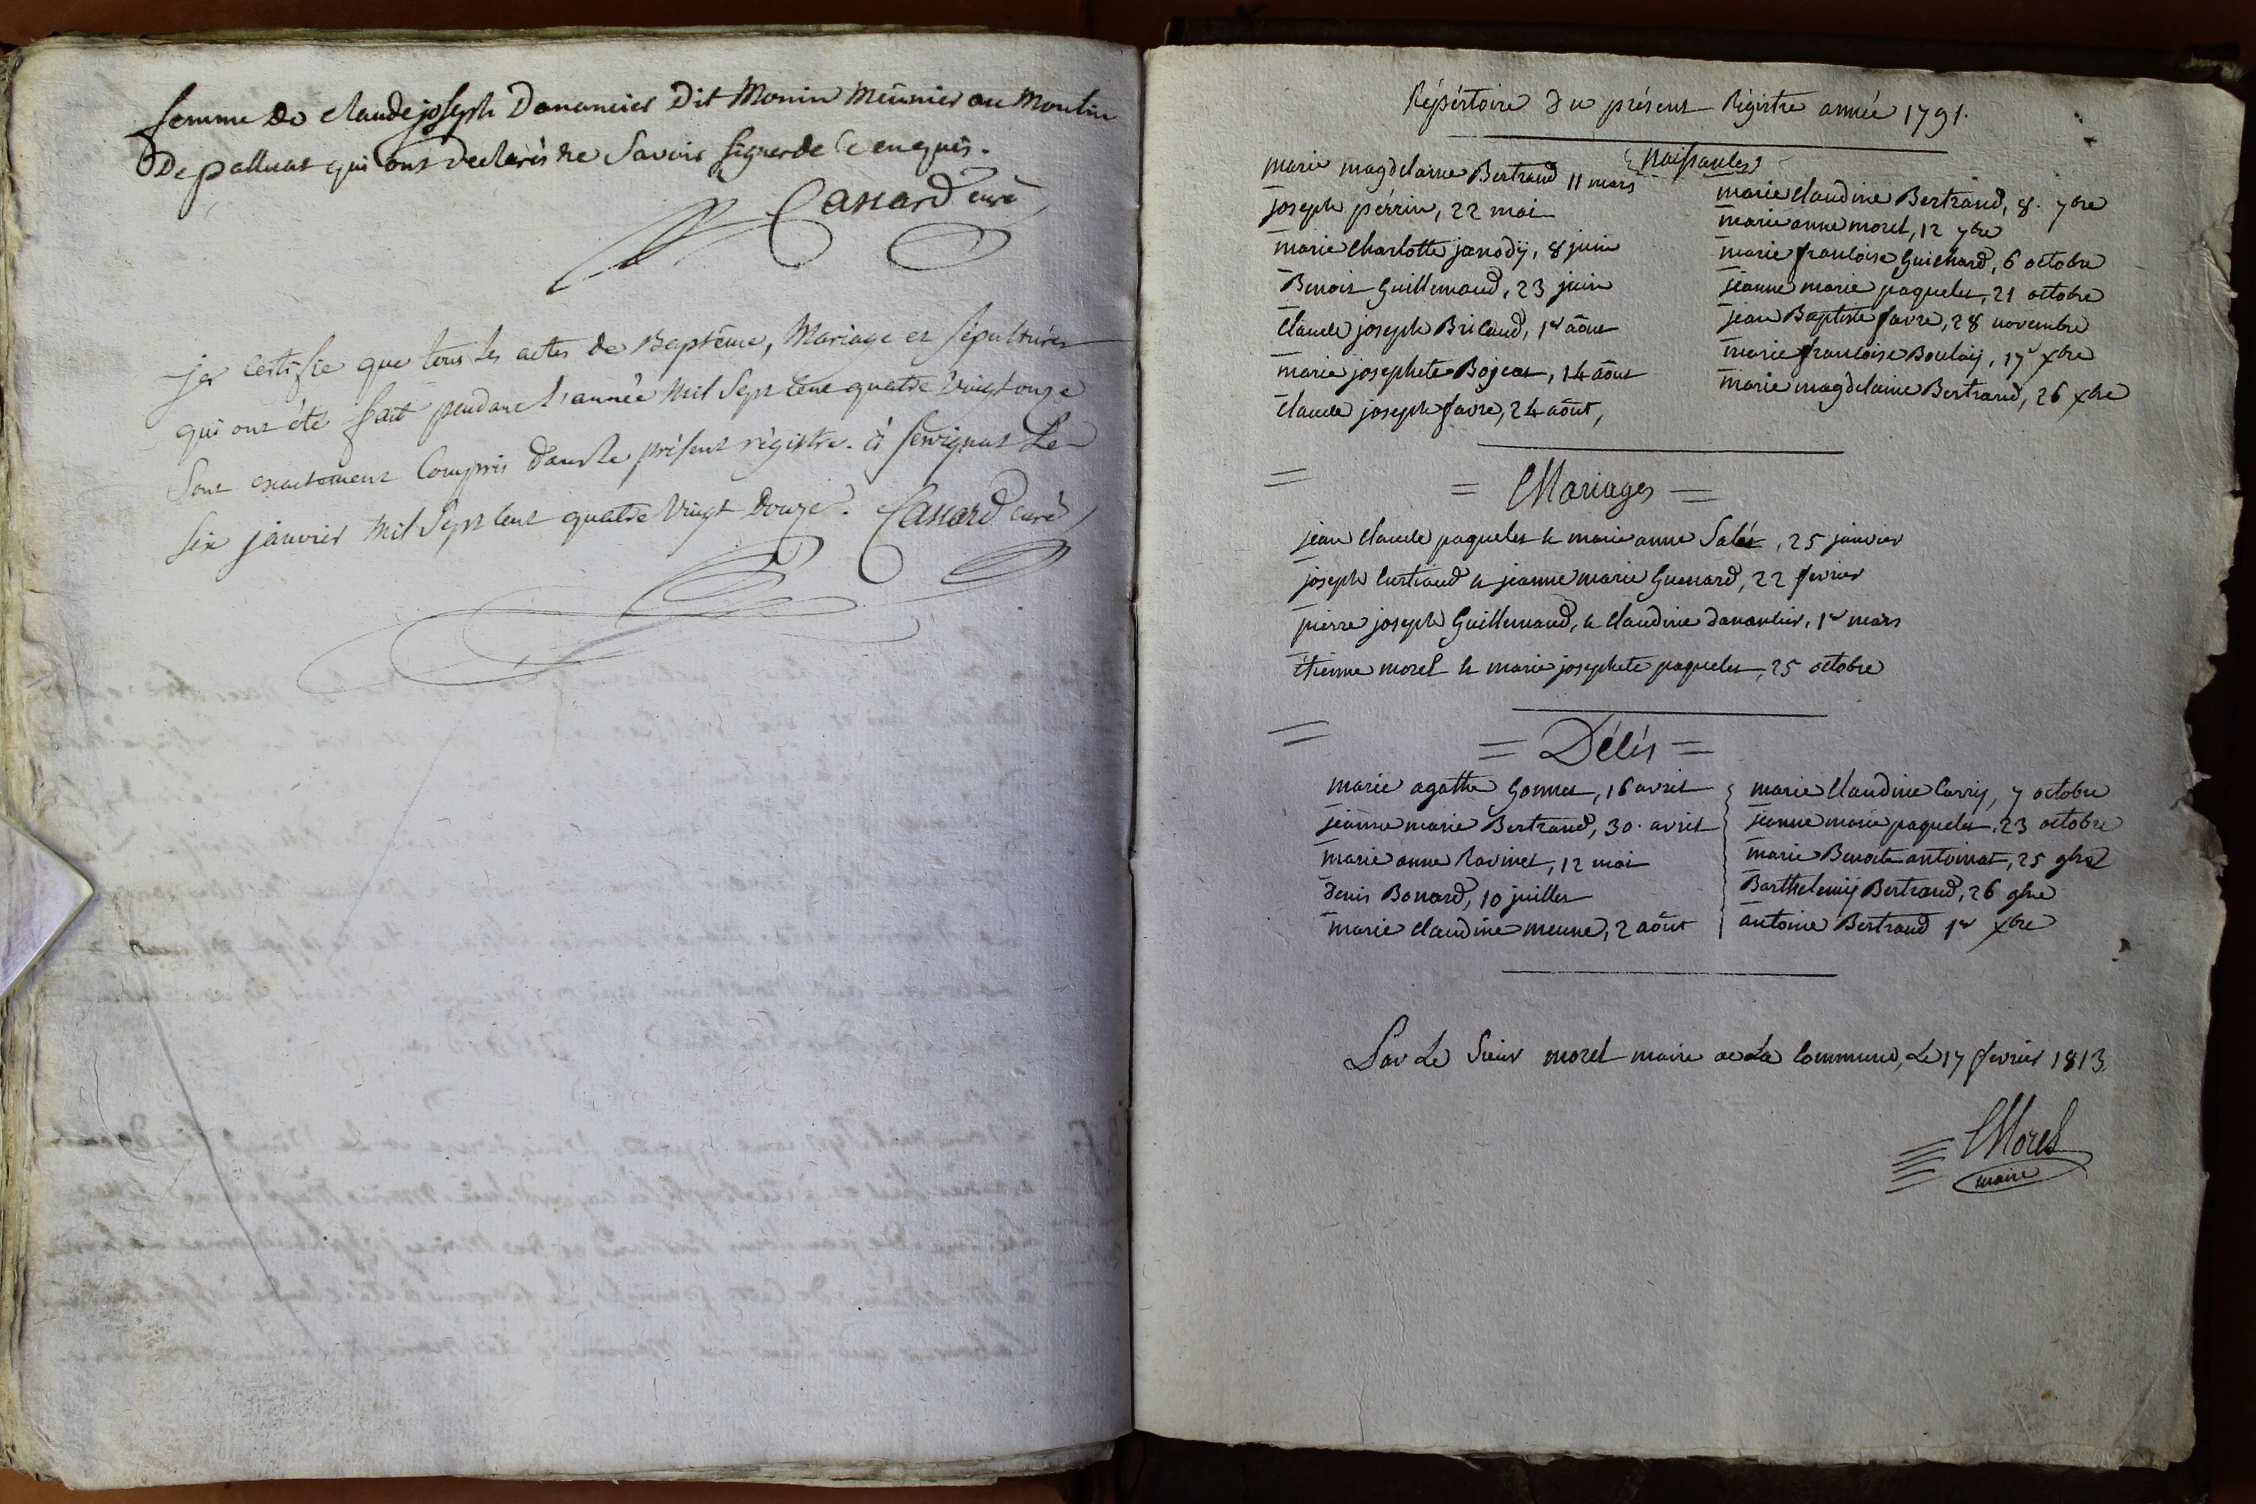 femme de claude joseph Danancier dit Monin meûnier au Moulin
de palluat qui ont declarés ne Savoir signer de ce enquis.
Canard curé
je certifie que tous les actes de Baptême, Mariage et sépultures
qui ont été fait pendant l'année mil sept cent quatre vingt onze
Sont exactement Compris dans le présent régistre. à servignat Le
six janvier mil sept cent quatre vingt douze. Canard curé
Répértoire du présent Régistre année 1791.
Naissances
marie magdelaine Bertrand 11 mars
joseph pérrin, 22 mai
marie Charlotte janody, 8 juin
Benoit Guillemaud, 23 juin
Claude joseph Bricaud, 1er aôut
marie josephete Bojeat, 14 aôut
Claude joseph favre, 24 aôut,
marie claudine Bertrand, 8. 7bre
marie anne morel, 12 7bre
marie francoise Guichard, 6 octobre
jeanne marie paquelet, 21 octobre
jean Baptiste favre, 28 novembre
marie francoise Boulay, 17 xbre
marie magdelaine Bertrand, 26 xbre
= Mariages =
jean claude paquelet & marie anne Salét, 25 janvier
joseph curtiaud & jeanne marie Guenard, 22 fevrier
pierre joseph Guillemaud, & claudine danancier, 1er mars
étienne morel & marie josephete paquelet, 25 octobre
= Décés =
marie agathe Gonnet, 16 avril
jeanne marie Bertrand, 30. avril
marie anne Ravinet, 12 mai
denis Bonard, 10 juillet
marie claudine meune, 2 aôut
marie claudine Carry, 7 octobre
jeanne marie paquelet, 23 octobre
marie Benoite antoinat, 25 9bre
Barthelemy Bertrand, 26 9bre
antoine Bertrand 1er xbre
Par Le Sieur morel maire de La Commune, Le 17 fevrier 1813.
Morel
maire